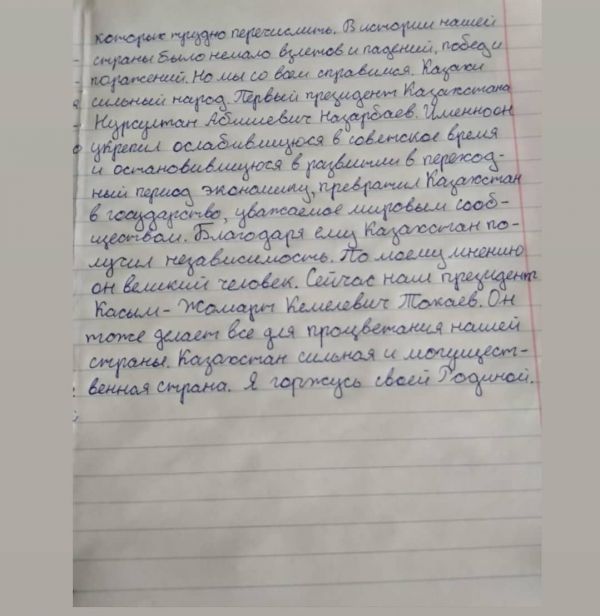 которых трудно перечислить. В истории нашей
страны было немало взлетов и падений, побед и
поражений. Но мы со всем справимся. Казахи
сильный народ. Первый президент Казахстана
Нурсултан Абишевич Назарбаев. Именно он
укрепил ослабившуюся в советское время
и остановившуюся в развитии в переход-
ный период экономику, превратил Казахстан
в государство, уважаемое мировым сооб-
ществом. Благодаря ему Казахстан по-
лучил независимость. По моему мнению
он великий человек. Сейчас наш президент
Касым-Жомарт Кемелевич Токаев. Он
тоже делает все для процветания нашей
страны. Казахстан сильная и могущест-
венная страна. Я горжусь своей Родиной.